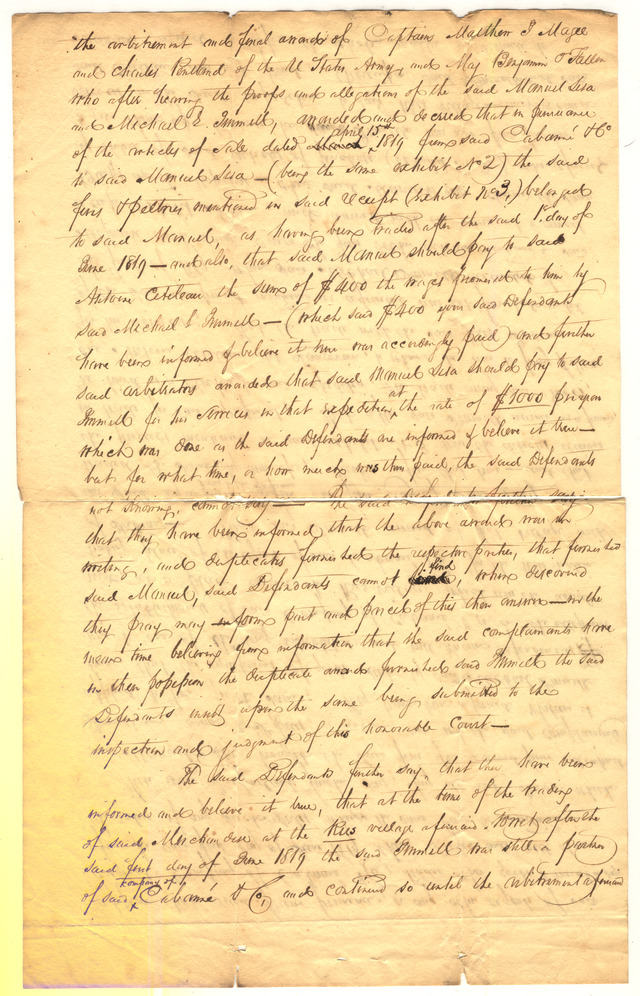 the arbitrement and final award of Captain Matthew J Magee
and Charles Pentland of the U States Army, and May Benjamin O'Fallon
who after hearing the proofs and allegations of the said Manuel Lisa
and Michael E. Immell, awarded and decreed that in pursuance
of the articles of Sale dated april 15th 1819 from said Cabanné & Co
to said Manuel Lisa — (being the same exhibit No 2) the said
furs & peltries mentioned in said receipt (exhibit No 3,) belonged
to said Manuel, as having been traded after the said 1st day of
June 1819 — and also, that said Manuel should pay to said
Antoine Citoleau the sum of $400 the wages promised to him by
said Michael E Immell — (which said $400 your said Defendants
have been informed & believe it true was accordingly paid) and further
said arbitrators awarded that said Manuel Lisa should pay to said
Immell for his services in that expedition at the rate of $1000 per year
which was done as the said Defendants are informed & believe it true —
but for what time, or how much was then paid, the said Defendants
not knowing, cannot say — The said Defendants further say;
that they have been informed that the above award was in
writing, and duplicates furnished the respective parties, that furnished
said Manuel, said Defendants cannot find, when discovered
they pray may form part and parcel of this their answer — in the
mean time believing from information that the said complainants have
in their possession the duplicate award furnished said Immell the said
Defendants insist upon the same being submitted to the
inspection and judgment of this honorable Court —
The said Defendants further say, that they have been
informed and believe it true, that at the time of the trading
of said Merchandise at the Kees village aforesaid, to wit, after the
said first day of June 1819 the said Immell was still a partner
of said company of Cabanné & Co, and continued so until the arbitrement aforesaid